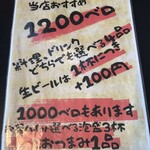 当店おすすめ
1200ベロ
料理・ドリンク
どちらでも選べる4品
生ビールは1杯につき
+100円
1000ベロもあります
選べる泡盛3杯
おつまみ1品